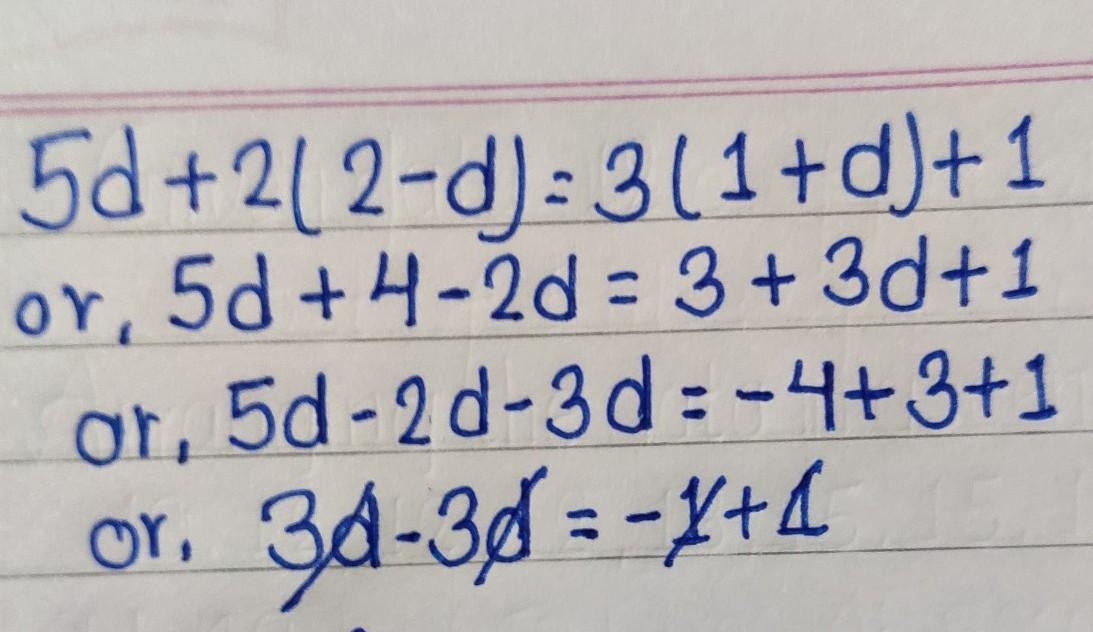 5d+2(2-d)=3(1+d)+1
or, 5d+4-2d=3+3d+1
or, 5d-2d-3d=-4+3+1
or, 3d-3d=-1+1